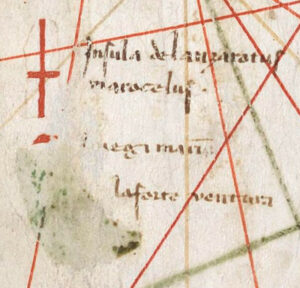 Insula de lanzarotus
marocelus.
uegi marin
laforte ventura